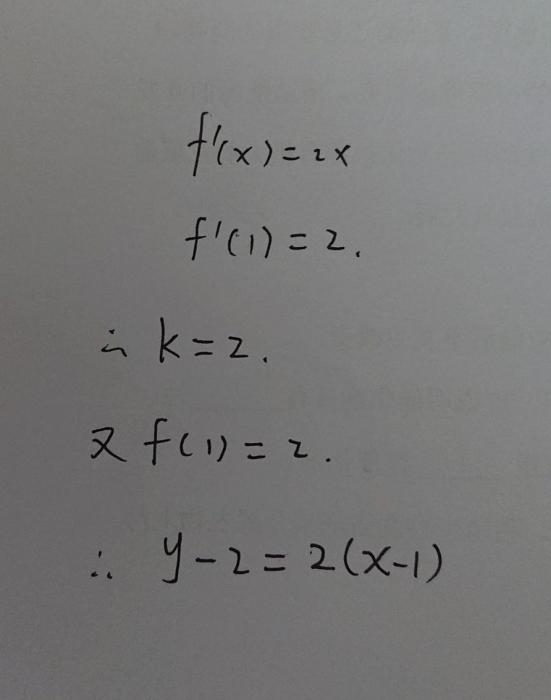 f'(x)=2x
f'(1)=2.
∴ k=2.
又 f(1)=2.
∴ y-2=2(x-1)